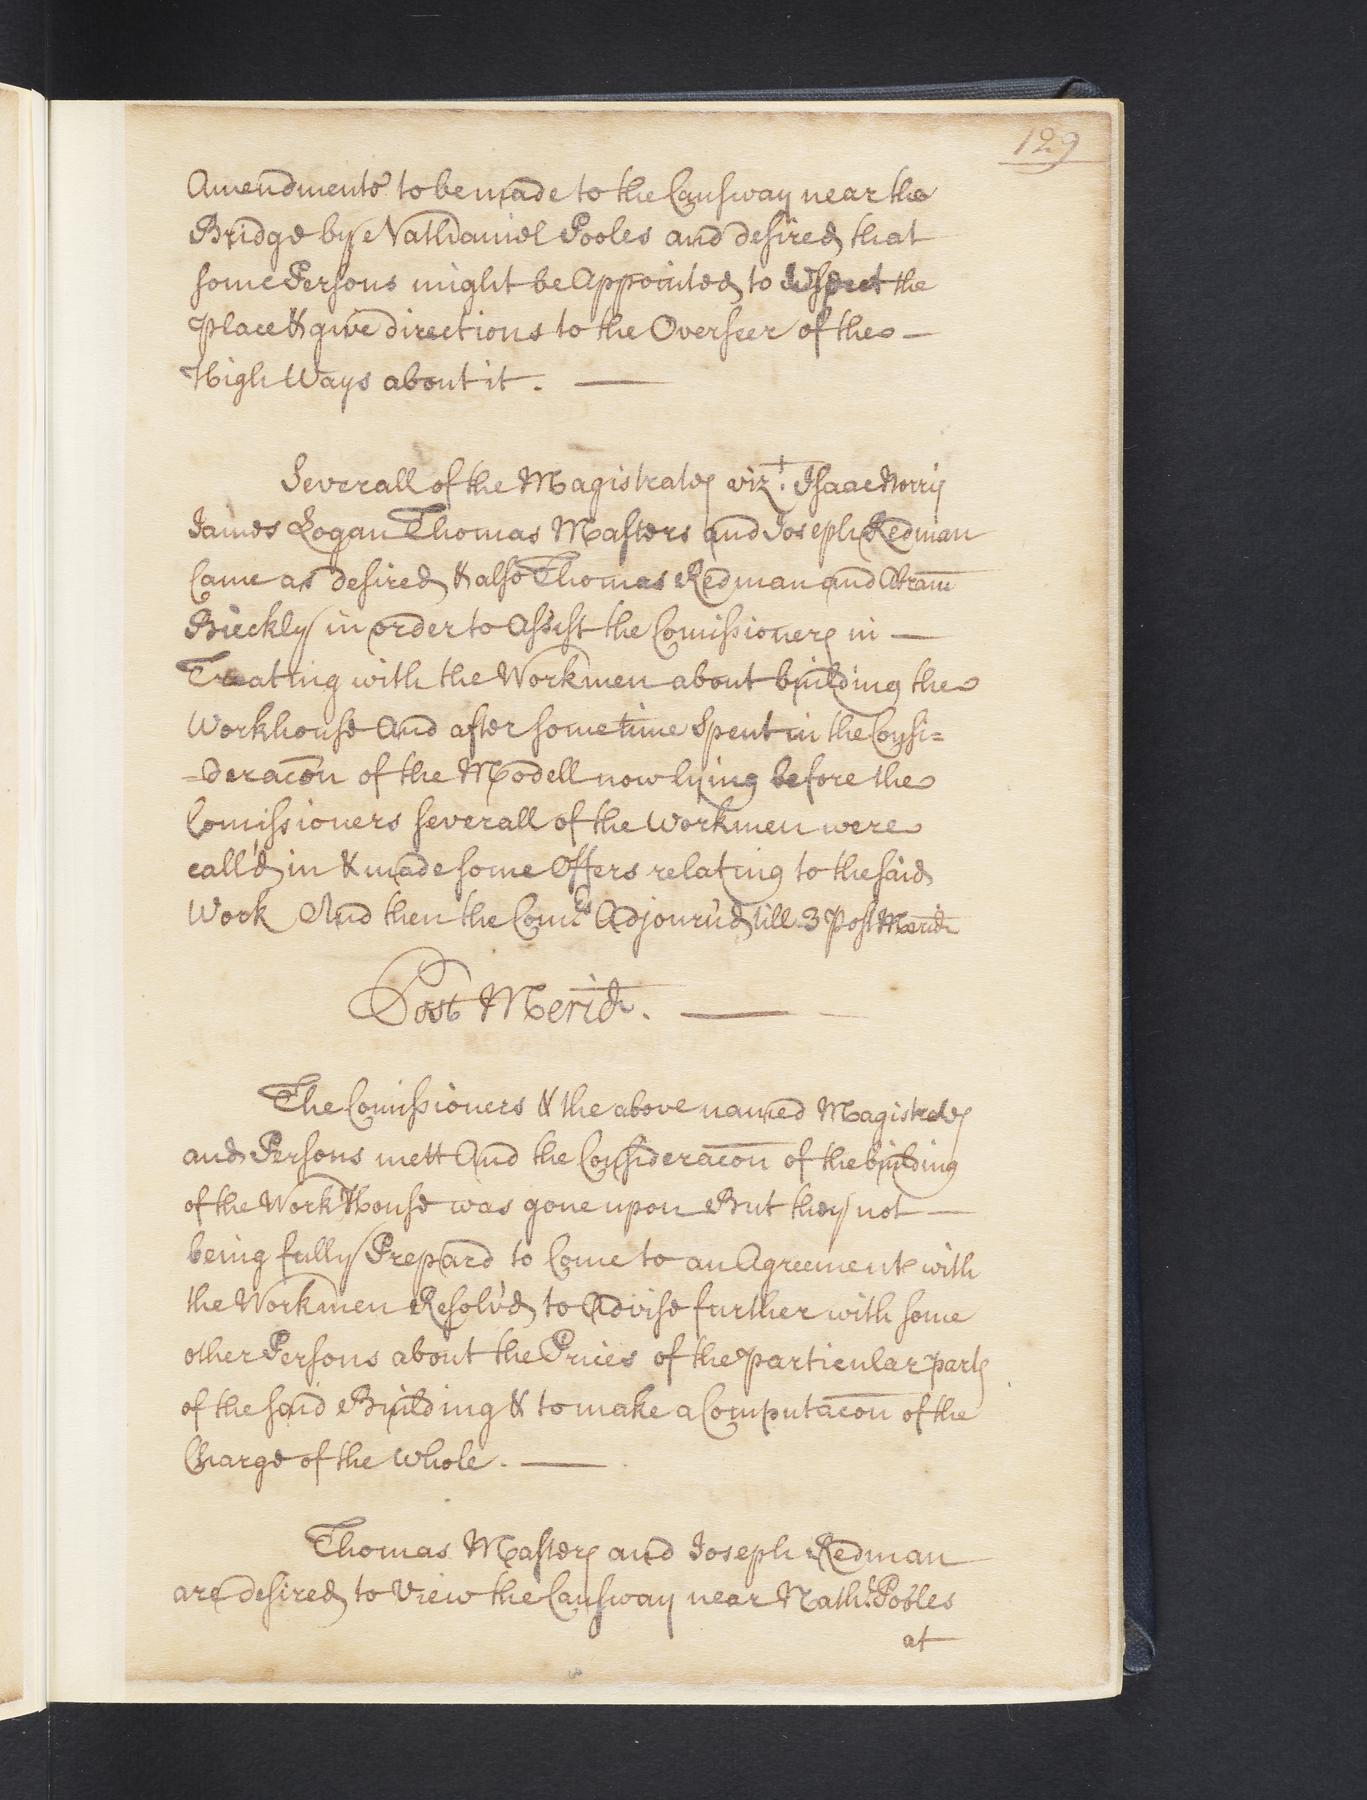 129
Amendments to be made to the Causway near the
Bridge by Nathaniel Pooles and desired that
some Persons might be Appointed to inspect the
place & give directions to the Overseer of the —
High Ways about it. —
Severall of the Magistrates vizt. Isaac Norris
James Logan Thomas Masters and Joseph Redman
Came as desired & also Thomas Redman and Abram
Bickly in order to Assist the Comissioners in —
Treating with the Workmen about building the
Workhouse And after some time Spent in the Consi=
=deracon of the Modell now lying before the
Comissioners severall of the Workmen were
call'd in & made some Offers relating to the said
Work And then the Comrs Adjourn'd till 3 Post Merid
Post Merid. —
The Comissioners & the above named Magistrates
and Persons mett And the Consideracon of the building
of the Work House was gone upon But they not —
being fully Prepard to Come to an Agreement with
the Workmen Resolv'd to Advise further with some
other Persons about the Prices of the particular parts
of the said Building & to make a Computacon of the
Charge of the whole. —
Thomas Masters and Joseph Redman
are desired to View the Causway near Nathl. Pooles
at